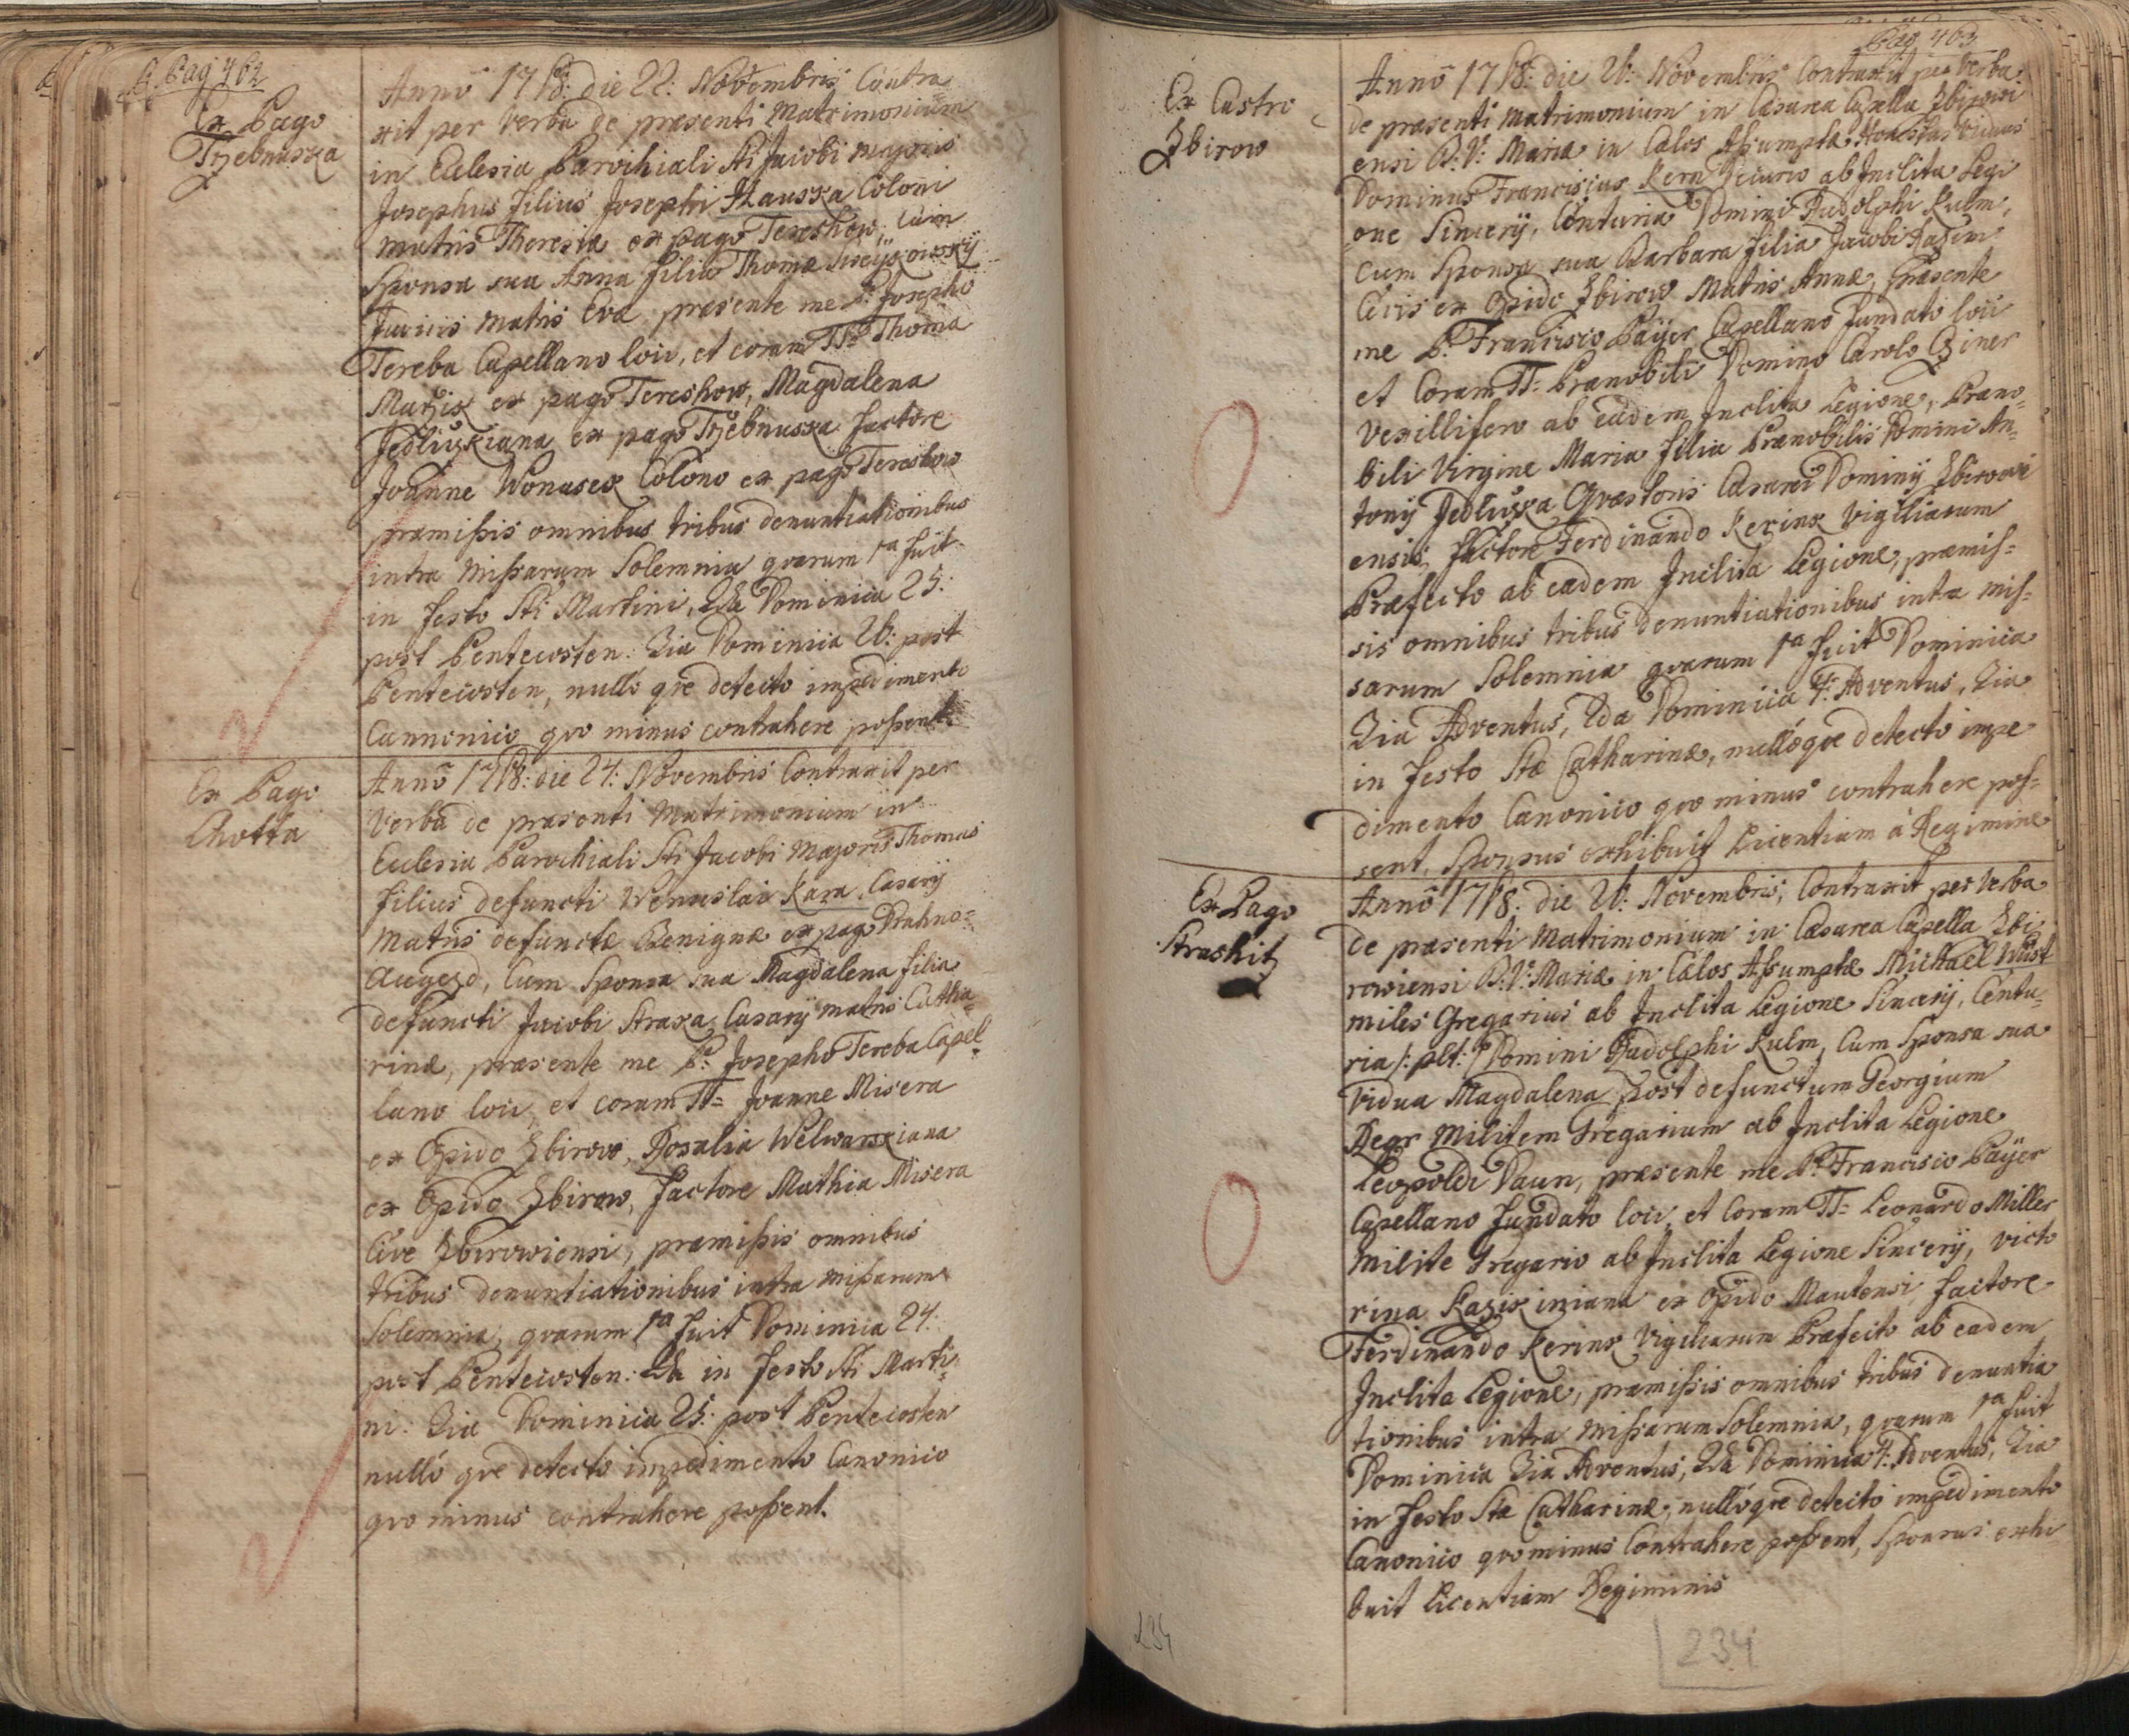 Pag 402
Ex Pago
Trzebnuska
Anno 1748: die 22: Novembris Contra
xit per verba de praesenti Matrimonium
in Ecclesia Parochiali Sti Jacobi Majoris
Josephus filius Josephi Hauska Coloni
matris Theresiae ex pago Tereshow, cum
Sponsa sua Anna filia Thomae
Judicis matris Evae praesente me P: Josepho
Tereba Capellano loci, et coram TT: Thoma
Matzik ex pago Tereshow, Magdalena
Jedliczkiana ex pago Trzebnuska factore
Joanne Wonasek Colono ex pago Tereshow
praemissis omnibus tribus denuntiationibus
intra Missarum Solemnia quarum 1a fuit
in festo Sti Martini, 2da Dominica 25:
post Pentecosten: 3ia Dominica 26: post
Pentecosten, nullo que detecto impedimento
Cannonico quo minus contrahere possent
Ex Pago
Lhotta
Anno 1748: die 24: Novembris Contraxit per
Verba de praesenti Matrimonium in
Ecclesia Parochiali Sti Jacobi Majoris Thomas
filius defuncti Wenceslai Kara Casarij
Matris defunctae Benignae ex pago Drahno=
Augezd, Cum Sponsa sua Magdalena filia
defuncti Jacobi Straka Casarij matris Catha
rinae, praesente me P: Josepho Tereba Capel
lano loci, et coram TT= Joanne Misera
ex Opido Zbirow, Rosalia Welwarskiana
ex Opido Zbirow, factore Mathia Misera
Cive Zbirowiensi, praemissis omnibus
tribus denuntiationibus intra missarum
Solemnia, quarum 1a fuit Dominica 24:
post Pentecosten: 2da in festo Sti Marti=
ni: 3ia Dominica 25: post Pentecosten
nullo que detecto impedimento Canonico
quo minus contrahere possent.
Pag 403
Ex Castro
Zbirow
Anno 1748: die 26: Novembris Contraxit per Verba
de praesenti matrimonium in Caesarea Capella Zbirowi
ensi B: V: Mariae in Caelos Assumptae Honestus viduus
Dominus Franciscus Kern Decurio ab Inclita Legi
one Sincerij, Centuria Domini Rudolphi Kulm,
cum Sponsa sua Barbara filia Jacobi
Civis ex Opido Zbirow Matris Annae, praesente
me P: Francisco Paÿer Capellano fundato loci
et Coram TT= Praenobili Domino Carolo Cziner
Vexillifero ab eadem Inclita Legione, Praeno=
bili Virgine Maria filia Praenobilis Domini An=
tonij Jedliczka Quaestoris Caesarei Dominij Zbirowi
ensis, factore Ferdinando Kerink Vigiliarum
Praefecto ab eadem Inclita Legione, praemis=
sis omnibus tribus denuntiationibus intra mis=
sarum Solemnia quarum 1a fuit Dominica
3ia Adventus, 2da Dominica 4: Adventus, 3ia
in festo Stae Catharinae, nulloque detecto impe
dimento Canonico quo minus contrahere pos=
sent, Sponsus exhibuit Licentiam à Regimine
Ex Pago
Strashitz
Anno 1748: die 26: Novembris, Contraxit per Verba
de praesenti Matrimonium in Caesarea Capella Zbi
rowiensi B: V: Mariae in Caelos Assumptae Michael Wüst
miles Gregarius ab Inclita Legione Sincerij, Centu=
ria /: plt: Domini Rudolphi Kulm, Cum Sponsa sua
Vidua Magdalena post defunctum Georgium
Militem Gregarium ab Inclita Legione
Leopoldi Daun, praesente me P: Francisco Paÿer
Capellano fundato loci, et Coram TT= Leonardo Miller
Milite Gregario ab Inclita Legione Sincerij, victo
rina ex Opido Mautensi, factore
Ferdinando Kerink Vigiliarum Praefecto ab eadem
Inclita Legione, praemissis omnibus tribus denuntia
tionibus intra missarum Solemnia, quarum 1a fuit
Dominica 3ia Adventus, 2da Dominica 4: Adventus, 3ia
in festo Stae Catharinae, nulloque detecto impedimento
Canonico quo minus Contrahere possent, Sponsus exhi
buit Licentiam Regiminis
234
234